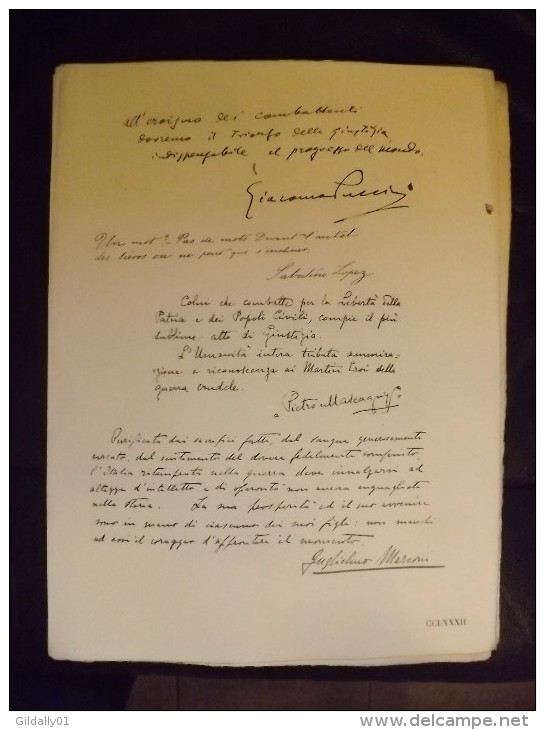 all'eroismo dei combattenti
dovremo il Trionfo della Giustizia
indispensabile al progresso del mondo.
Giacomo Puccini
Un mot?. Pas de mots. Devant l'autel
des héros on ne peut que s'incliner.
Sabatino Lopez
Colui che combatte per la Libertà della
Patria e dei Popoli Civili, compie il più
sublime atto di Giustizia.
L'Umanità intera tributa ammira-
zione e riconoscenza ai Martiri Eroi della
guerra crudele.
Pietro Mascagni
Purificata dai sacrifici fatti, dal sangue generosamente
versato, dal sentimento del dovere fedelmente compiuto,
l'Italia ritemprata nella guerra deve innalzarsi ad
altezze d'intelletto e di operosità non ancora eguagliate
nella storia. La sua prosperità ed il suo avvenire
sono in mano di ciascuno dei suoi figli: non manchi
ad essi il coraggio d'affrontare il momento
Guglielmo Marconi
CCLXXXII
Gildally01
http://www.delcampe.net